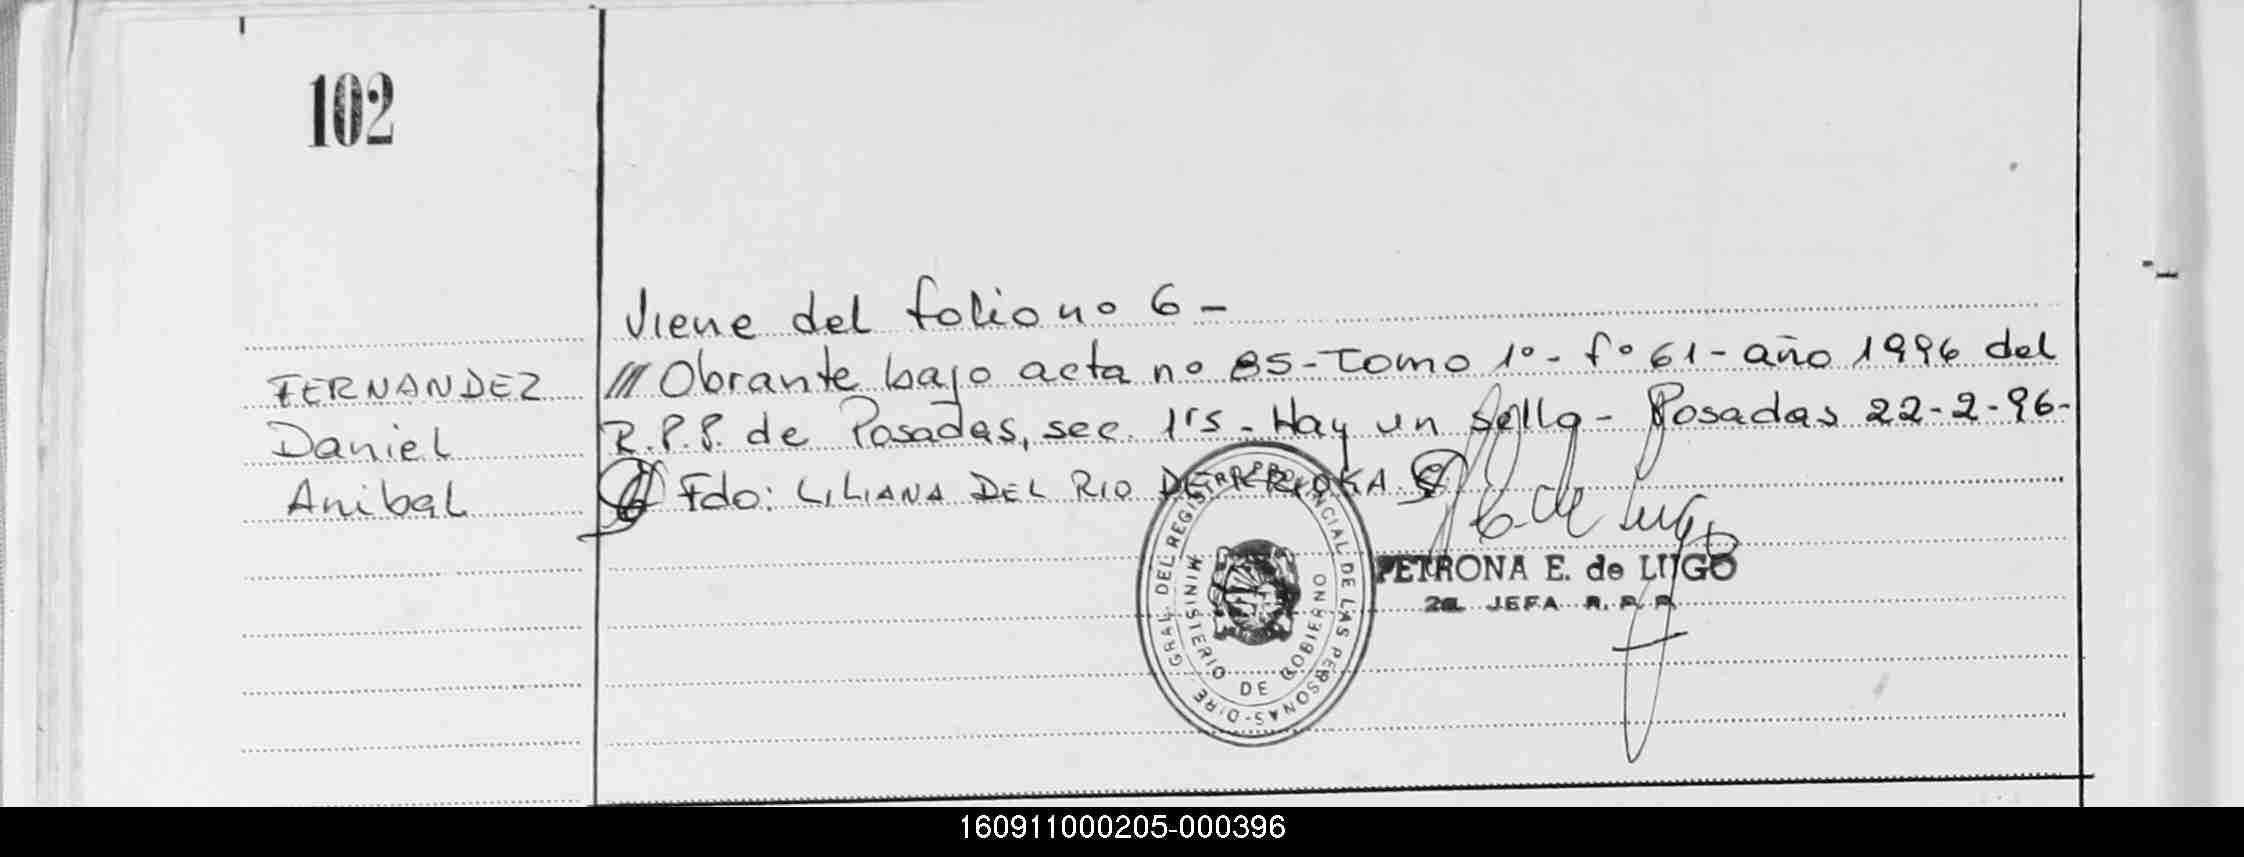 102
Viene del folio no 6 -
FERNANDEZ
Daniel
Anibal
/// Obrante bajo acta no 85 - Tomo 1º - fº 61 - año 1996 del
R.P.P. de Posadas, sec. 1rs - Hay un sello - Posadas 22-2-96-
Fdo: LILIANA DEL RIO DE
DIRE GRAL DEL REGIST PROVINCIAL DE LAS PERSONAS
MINISTERIO DE GOBIERNO
PETRONA E. de LUGO
2a. JEFA R. P. P.
160911000205-000396